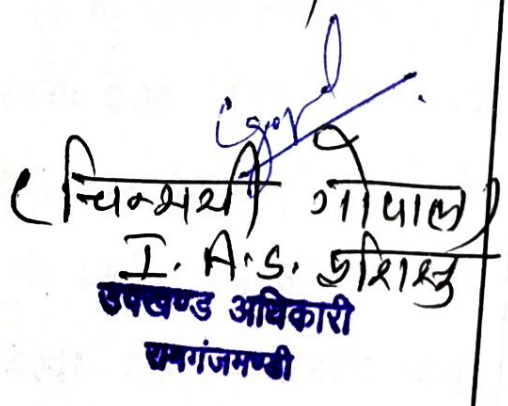 (चिन्मयी गोपाल)
I. A. S. प्रशिक्षु
उपखण्ड अधिकारी
रामगंजमण्डी